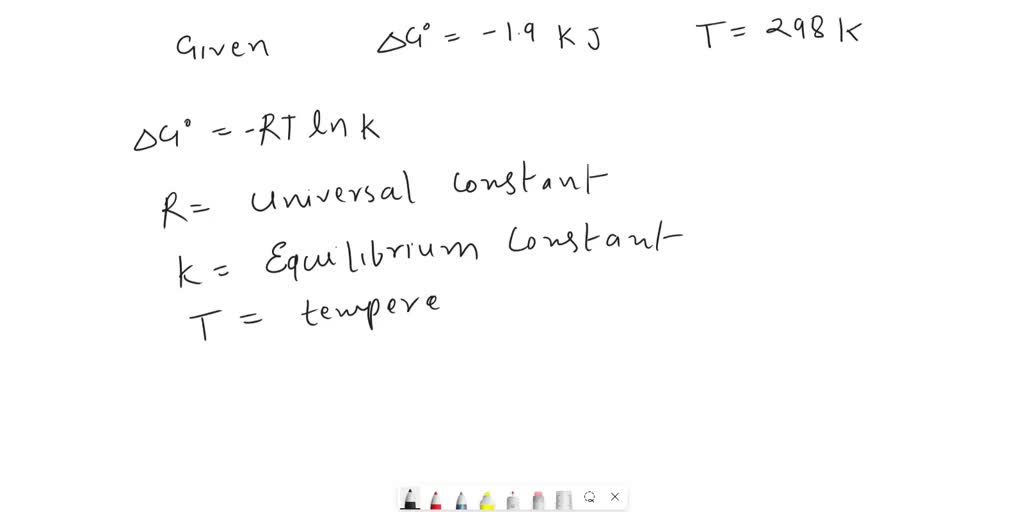 Given ΔG° = -1.9 KJ T = 298 K
ΔG° = -RT ln K
R = Universal Constant
K = Equilibrium Constant
T = tempere